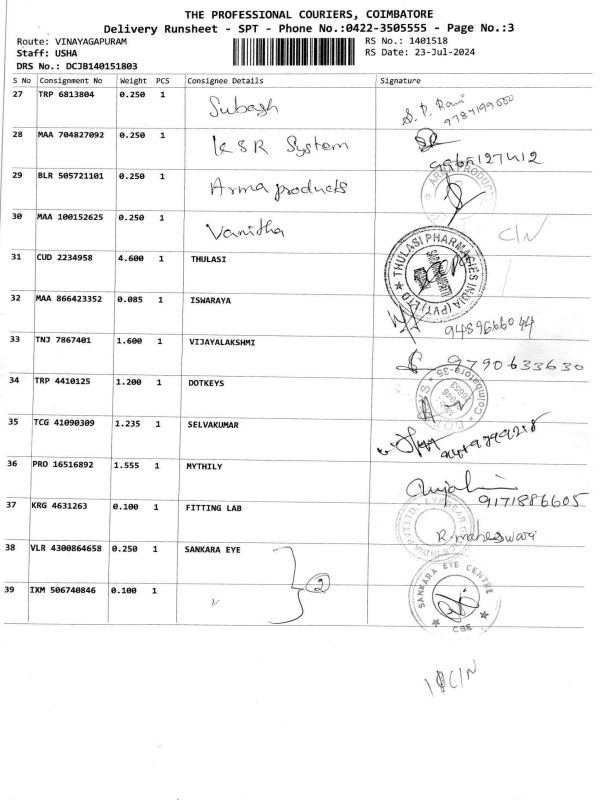 THE PROFESSIONAL COURIERS, COIMBATORE
Delivery Runsheet - SPT - Phone No.:0422-3505555 - Page No.:3
Route: VINAYAGAPURAM
RS No.: 1401518
Staff: USHA
RS Date: 23-Jul-2024
DRS No.: DCJB140151803
S No Consignment No Weight PCS Consignee Details Signature
27 TRP 6813804 0.250 1 Subash S. P. Rani
28 MAA 704827092 0.250 1 KSR System
29 BLR 505721101 0.250 1 Arma products
ARMA PRODUCTS
30 MAA 100152625 0.250 1 Vanitha C/N
31 CUD 2234958 4.600 1 THULASI
THULASI PHARMACIES INDIA (PVT) LTD
32 MAA 866423352 0.085 1 ISWARAYA 9489666044
33 TNJ 7867401 1.600 1 VIJAYALAKSHMI 9790633630
34 TRP 4410125 1.200 1 DOTKEYS
Coimbatore-35
35 TCG 41090309 1.235 1 SELVAKUMAR
36 PRO 16516892 1.555 1 MYTHILY 9171886605
37 KRG 4631263 0.100 1 FITTING LAB R. maheswari
38 VLR 4300864658 0.250 1 SANKARA EYE
2
SANKARA EYE CENTRE
CBE
39 IXM 506740846 0.100 1 "